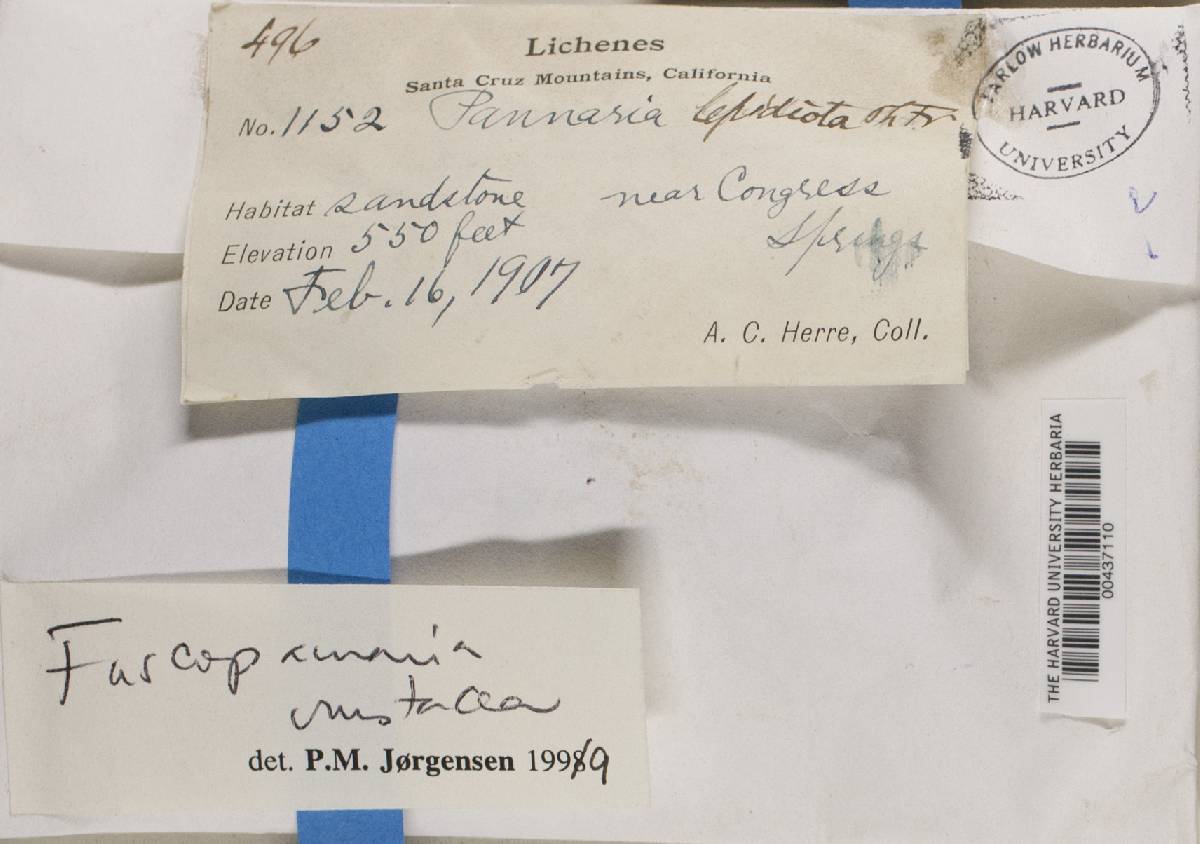 496
Lichenes
Santa Cruz Mountains, California
No. 1152 Pannaria lepidiota Th.Fr.
Habitat sandstone near Congress
Springs
Elevation 550 feet
Date Feb. 16, 1907
A. C. Herre, Coll.
FARLOW HERBARIUM
HARVARD
UNIVERSITY
THE HARVARD UNIVERSITY HERBARIA
00437110
Fuscopannaria
crustacea
det. P.M. Jørgensen 1998/9